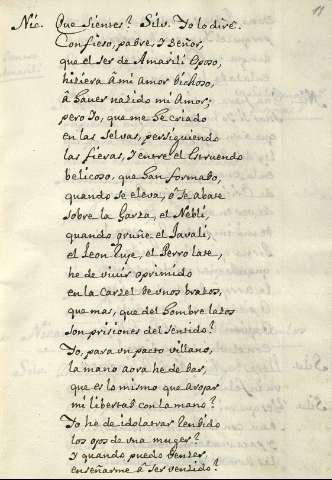 11
Nic. Que sientes? Silv. Yo lo diré.
Confieso, padre, y Señor,
que el ser de Amarili esposo,
hiziera â mi amor dichoso,
â haver nazido mi Amor;
pero Yo, que me he criado
en las selvas, persiguiendo
las fieras, y entre el estruendo
belicoso, que han formado,
quando se eleva, ô se abate
sobre la Garza, el Neblí,
quando gruñe el Javali,
el Leon Ruje, el Perro late,
he de vivir oprimido
en la Carzel de unos brazos,
que mas, que del hombre lazos
son prisiones del sentido?
Yo, para un pacto villano,
la mano aora he de dar,
que es lo mismo que
mi libertad con la mano?
Yo he de idolatrar rendido
los ojos de vna muger?
y quando puedo
enseñarme â ser vencido?